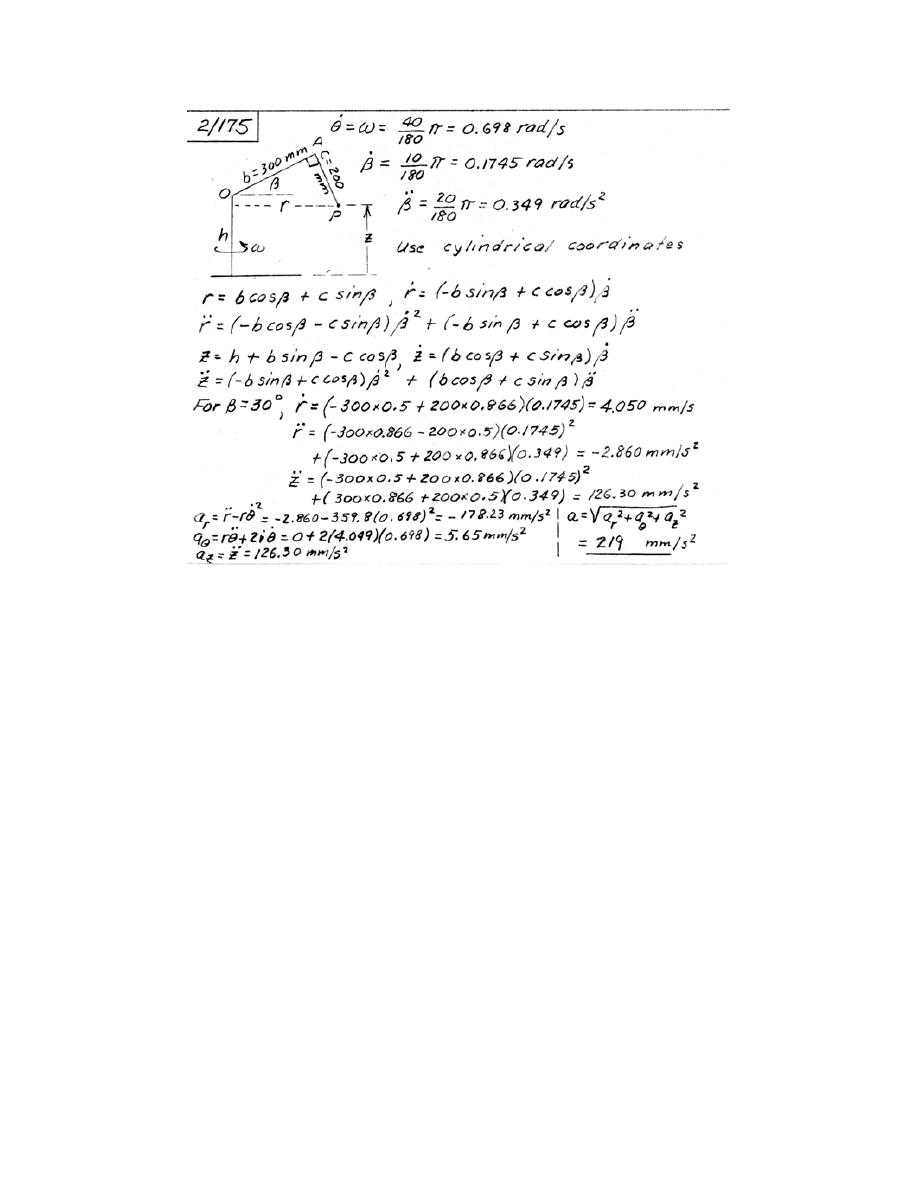 2/175
θ̇ = ω = 40/180 π = 0.698 rad/s
β̇ = 10/180 π = 0.1745 rad/s
β̈ = 20/180 π = 0.349 rad/s²
Use cylindrical coordinates
A
b=300 mm
C=200 mm
β
O
r
P
h
ω
z
r = b cosβ + c sinβ , ṙ = (-b sinβ + c cosβ) β̇
r̈ = (-b cosβ - c sinβ) β̇² + (-b sin β + c cos β) β̈
z = h + b sin β - c cosβ, ż = (b cosβ + c sinβ) β̇
z̈ = (-b sinβ + c cosβ) β̇² + (b cosβ + c sin β) β̈
For β = 30°, ṙ = (-300×0.5 + 200×0.866)(0.1745) = 4.050 mm/s
r̈ = (-300×0.866 - 200×0.5)(0.1745)²
+(-300×0.5 + 200×0.866)(0.349) = -2.860 mm/s²
z̈ = (-300×0.5 + 200×0.866)(0.1745)²
+(300×0.866 + 200×0.5)(0.349) = 126.30 mm/s²
a_r = r̈ - rθ̇² = -2.860 - 359.8(0.698)² = -178.23 mm/s²
a_θ = rθ̈ + 2ṙθ̇ = 0 + 2(4.049)(0.698) = 5.65 mm/s²
a_z = z̈ = 126.30 mm/s²
a = √(a_r² + a_θ² + a_z²)
= 219 mm/s²